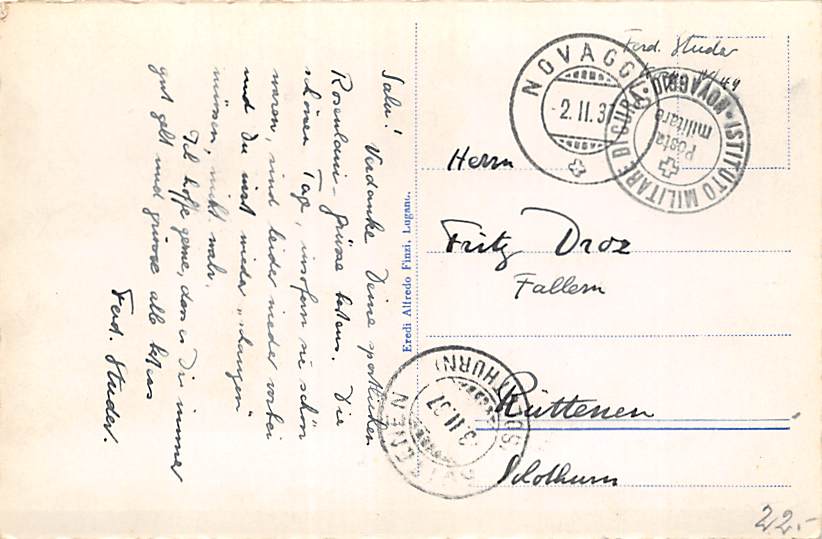 Salu! Verdanke Deine sportlichen
Rosenlaui-Grüsse bestens. Die
schönen Tage, insofern sie schön
waren, sind leider wieder vorbei
und Du wirst wieder „
müssen, nicht wahr.
Ich hoffe gerne, dass es Dir immer
gut geht und grüsse alle bestens
Ferd. Studer.
Eredi Alfredo Finzi, Lugano.
Ferd. Studer
NOVAGGIO
-2.II.37
ISTITUTO MILITARE DI CURA · NOVAGGIO ·
Posta
militare
Herrn
Fritz Droz
Fallern
Rüttenen
Solothurn
(SOLOTHURN)
3.II.37
22.-